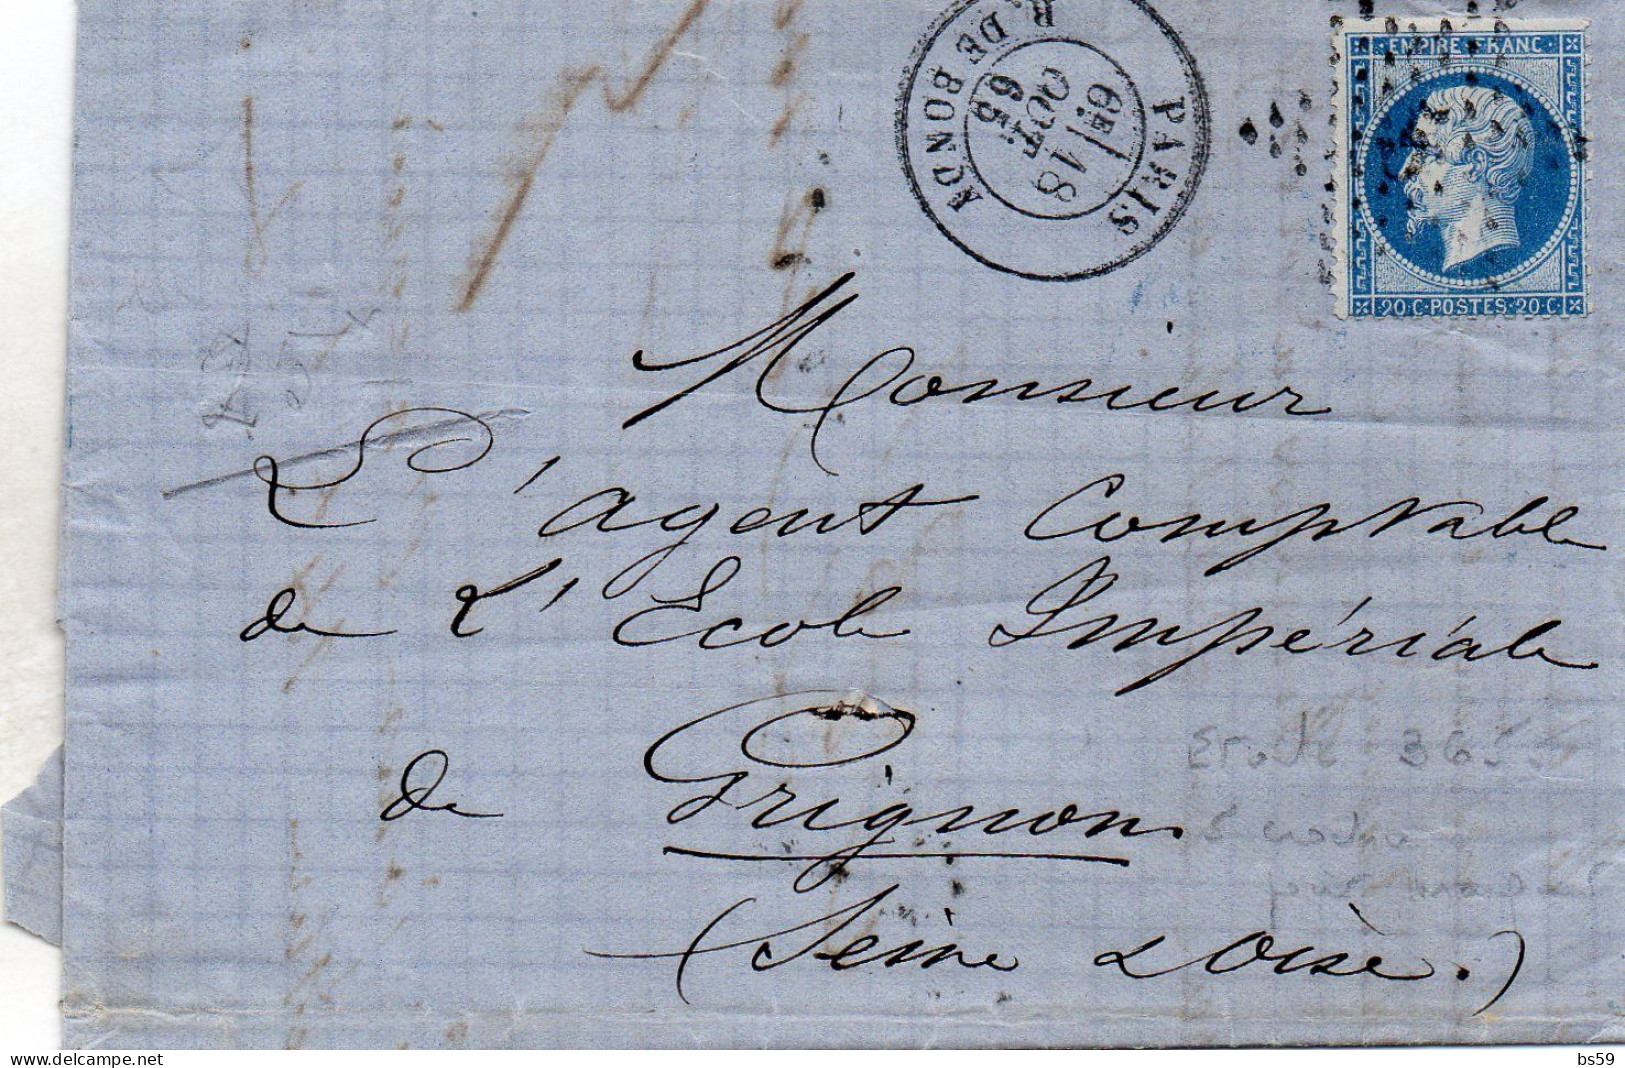 PARIS
R. DE BONDY
6E / 18
OCT.
65
EMPIRE FRANC
20 C POSTES 20 C
Monsieur
L'agent Comptable
de L'École Impériale
de Grignon
(Seine & Oise.)
Etoile
pour
bs59
www.delcampe.net